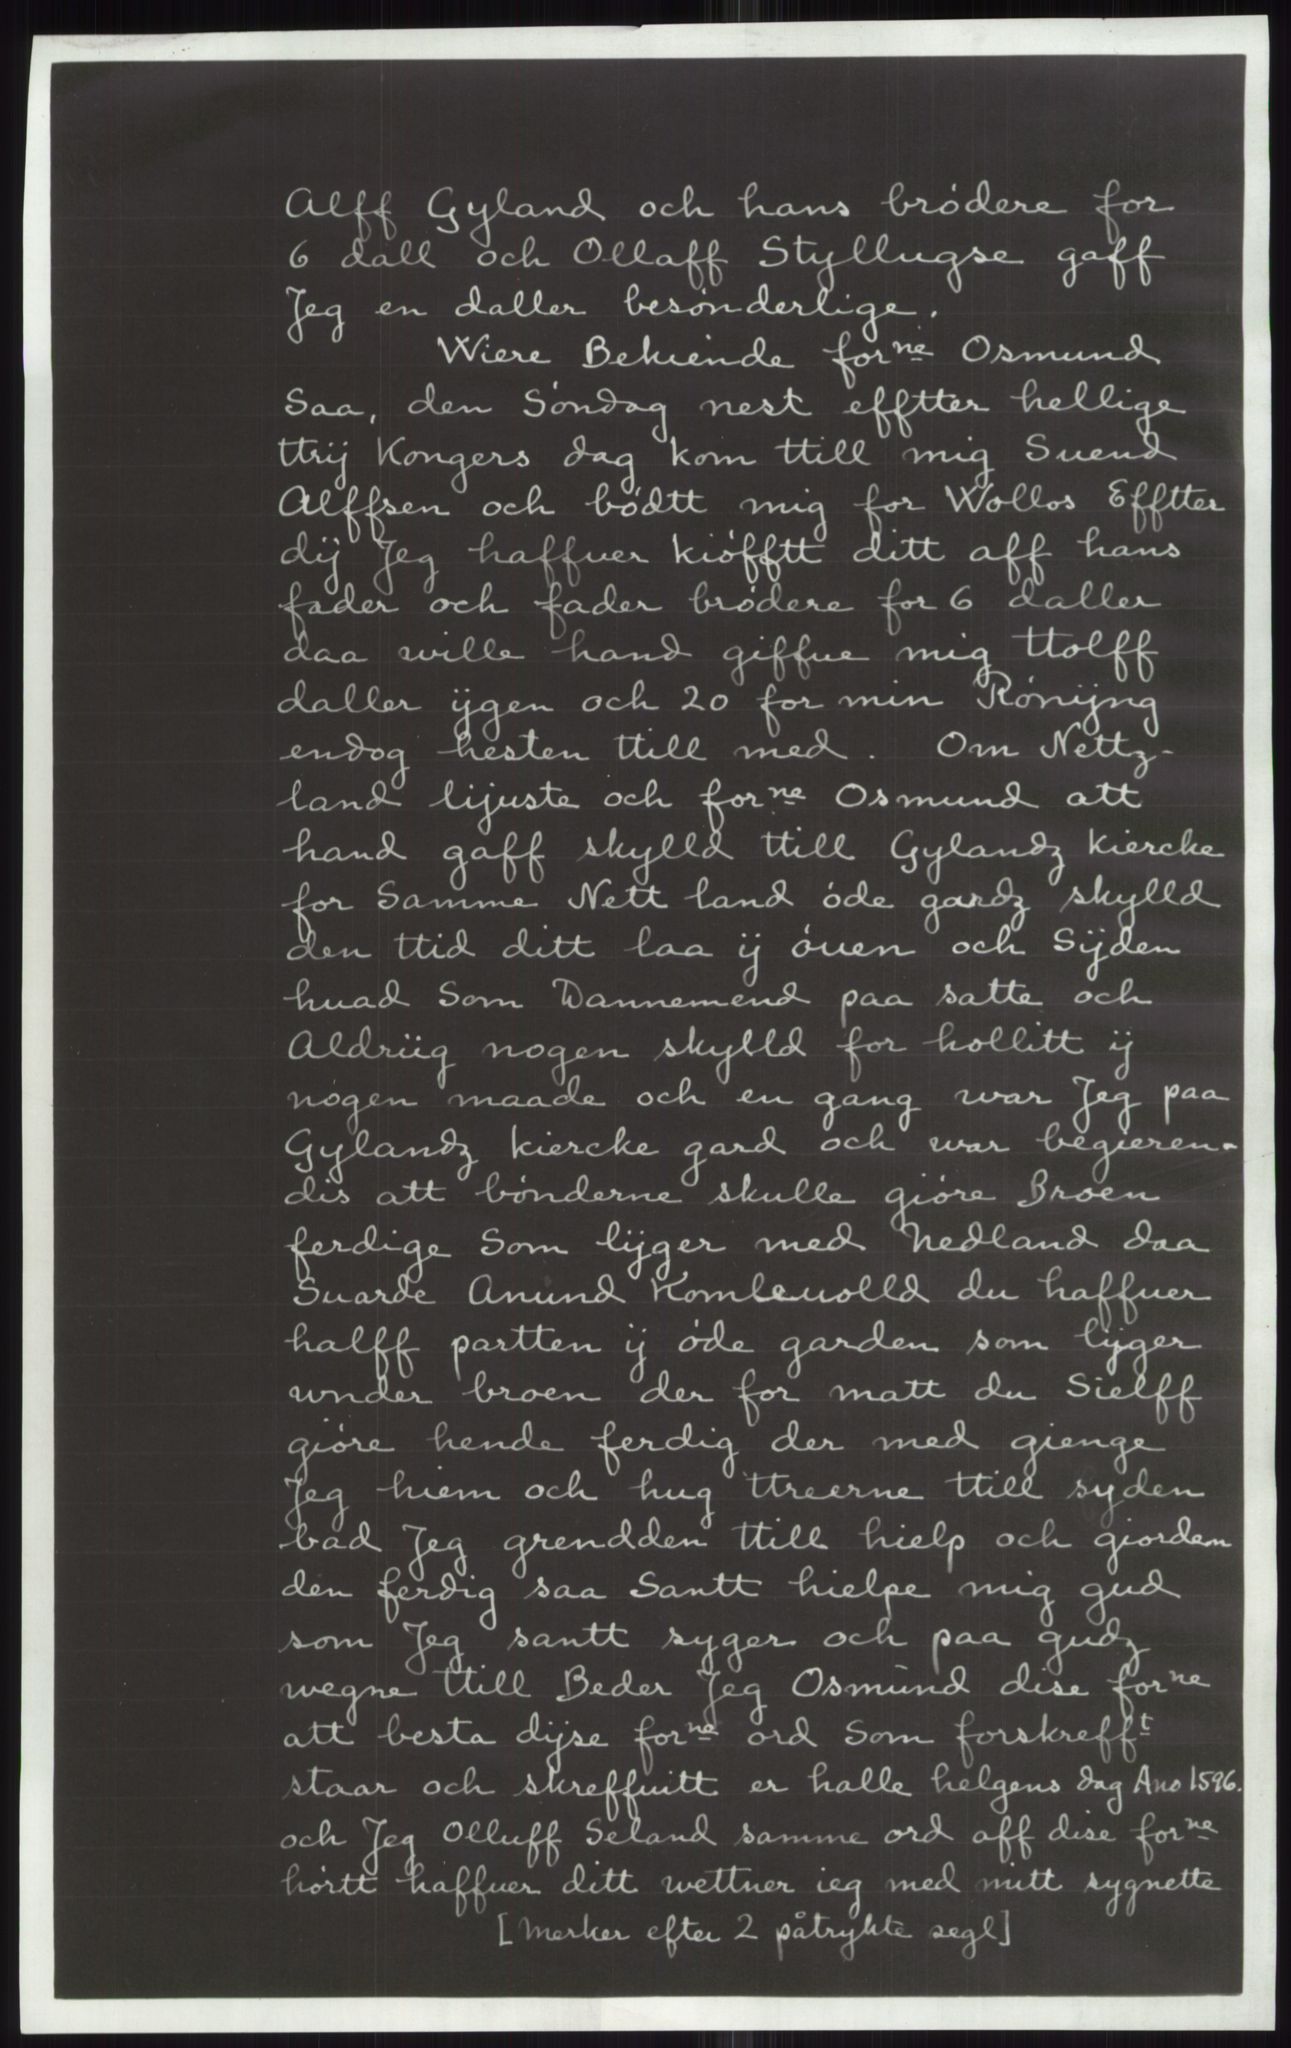 Alff Gyland och hans bródere for
6 dall och Ollaff Styllugse gaff
Jeg en daller besónderlige.
Wiere Bekiende forne Osmund
Saa, den Sóndag nest efftter hellige
ttrij Kongers dag kom ttill mig Suend
Alffsen och bódtt mig for Wollos Efftter
dij Jeg haffuer kiófftt ditt aff hans
fader och fader brødere for 6 daller
daa wille hand giffue mig ttolff
daller ijgen och 20 for min Rónijng
endog hesten ttill med. Om Nettz-
land lijuste och forne Osmund att
hand gaff skylld ttill Gylandz kiercke
for Samme Nett land óde gardz skylld
den ttid ditt laa ij óuen och Sijden
huad Som Dannemend paa satte och
Aldriig nogen skylld for hollitt ij
nogen maade och en gang war Jeg paa
Gylandz kiercke gard och war begieren-
dis att bónderne skulle gióre Broen
ferdige Som lijger med Nedland daa
Suarde Anund Komleuolld du haffuer
halff partten ij óde garden som lijger
wnder broen der for matt du Sielff
gióre hende ferdig der med gienge
Jeg hiem och hug ttreerne ttill syden
bad Jeg grendden ttill hielp och giordem
den ferdig saa Santt hielpe mig gud
som Jeg santt syger och paa gudz
wegne ttill Beder Jeg Osmund dise forne
att besta dijse forne ord Som forskrefft
staar och skreffuitt er halle helgens dag Ano 1596.
och Jeg Olluff Seland samme ord aff dise forne
hórtt haffuer ditt wettner ieg med mitt sygnette
[Merker efter 2 påtrykte segl]